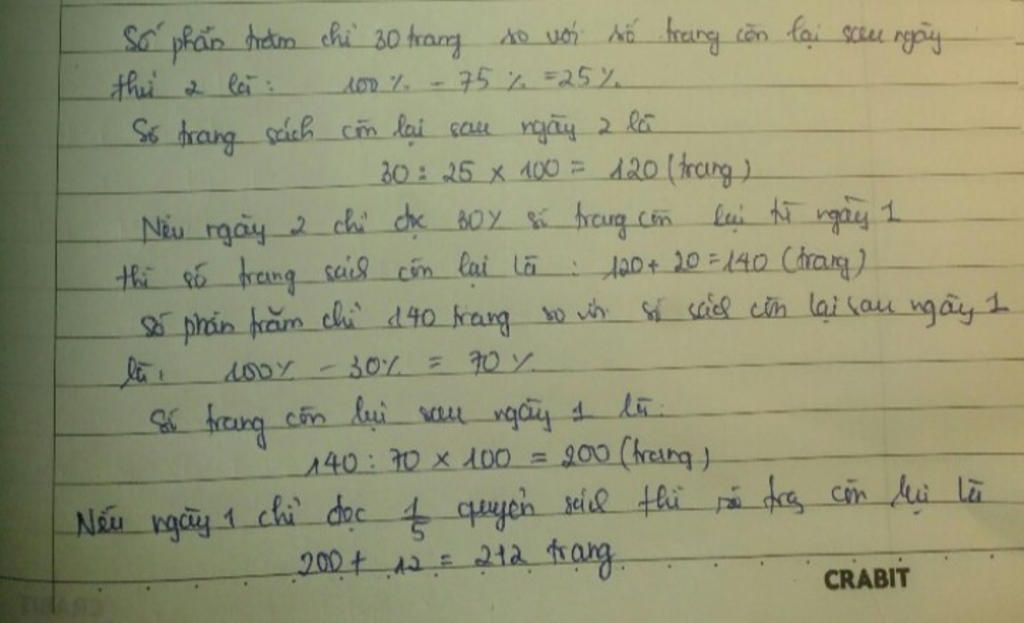 Số phần trăm chỉ 30 trang so với số trang còn lại sau ngày
thứ 2 là: 100% - 75% = 25%
Số trang sách còn lại sau ngày 2 là
30 : 25 x 100 = 120 (trang)
Nếu ngày 2 chỉ đọc 30% số trang còn lại từ ngày 1
thì số trang sách còn lại là : 120 + 20 = 140 (trang)
Số phần trăm chỉ 140 trang so với số sách còn lại sau ngày 1
là: 100% - 30% = 70%
Số trang còn lại sau ngày 1 là:
140 : 70 x 100 = 200 (trang)
Nếu ngày 1 chỉ đọc 1/5 quyển sách thì số trg còn lại là
200 + 12 = 212 trang
CRABIT